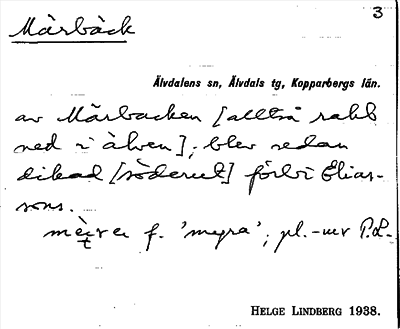 3
Mårbäck
Älvdalens sn, Älvdals tg, Kopparbergs län.
av Mårbacken [alltså rakt
ned i älven]; blev sedan
dikad [söderut] förbi Elias-
sons.
f. 'myra'; pl. -ur P.L.
HELGE LINDBERG 1938.